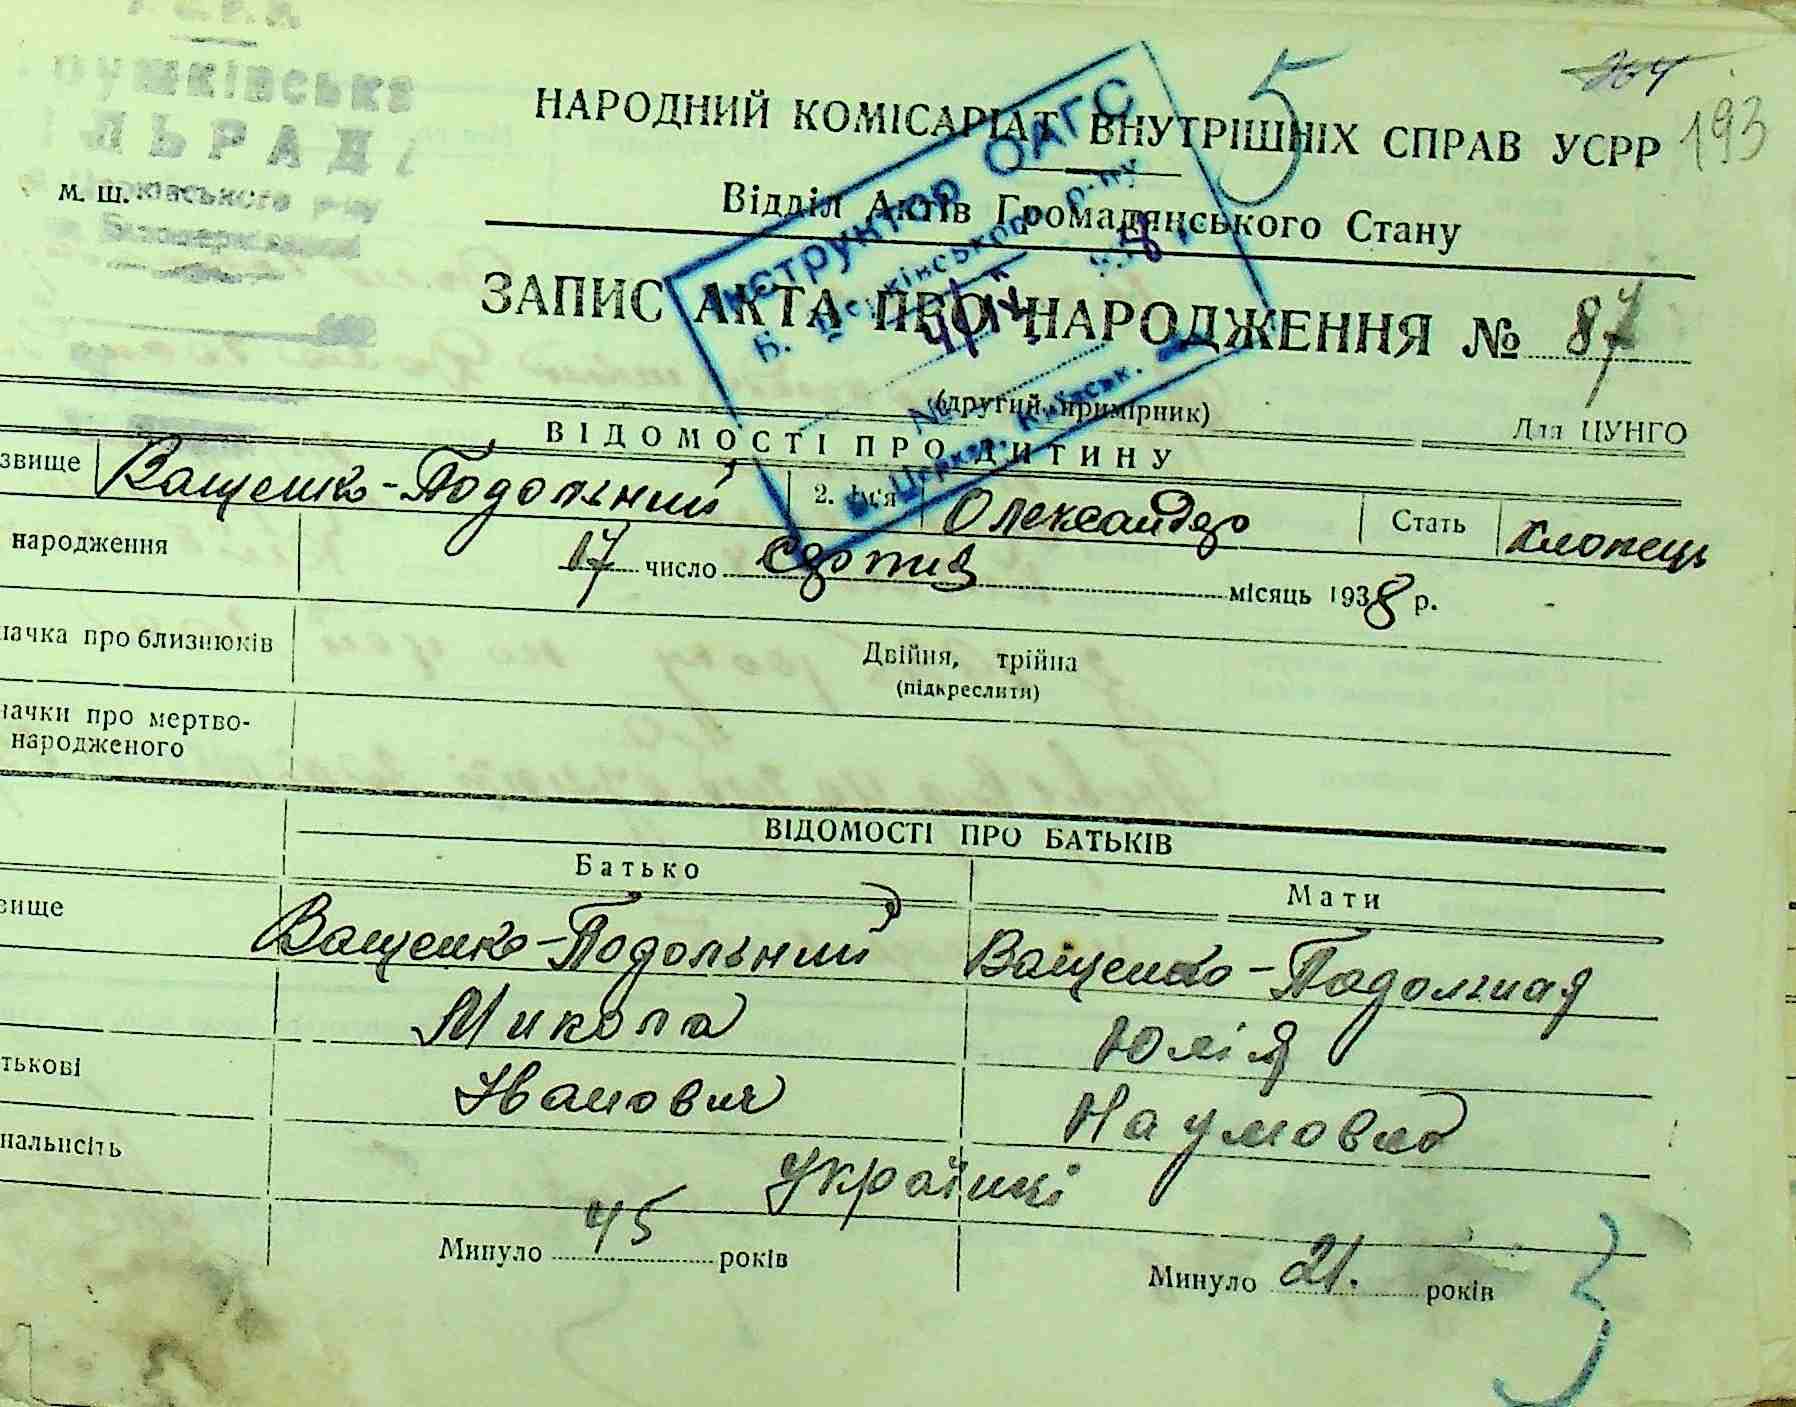 264
193
5
ЛЬРАД
м. ш.
НАРОДНИЙ КОМІСАРІАТ ВНУТРІШНІХ СПРАВ УСРР
Відділ Актів Громадянського Стану
Інструктор ОАГС
ЗАПИС АКТА ПРО НАРОДЖЕННЯ № 87
(другий примірник)
Для ЦУНГО
ВІДОМОСТІ ПРО ДИТИНУ
звище Ващенко-Подольний 2. Ім'я Олександр Стать хлопець
народження 17 число Сертня місяць 1938 р.
начка про близнюків Двійня, трійня
(підкреслити)
начки про мертво-
народженого
ВІДОМОСТІ ПРО БАТЬКІВ
Батько Мати
звище Ващенко-Подольний Ващенко-Подольная
Микола Юлія
тькові Іванович Наумовна
нальнсіть Українці
Минуло 45 років Минуло 21. років